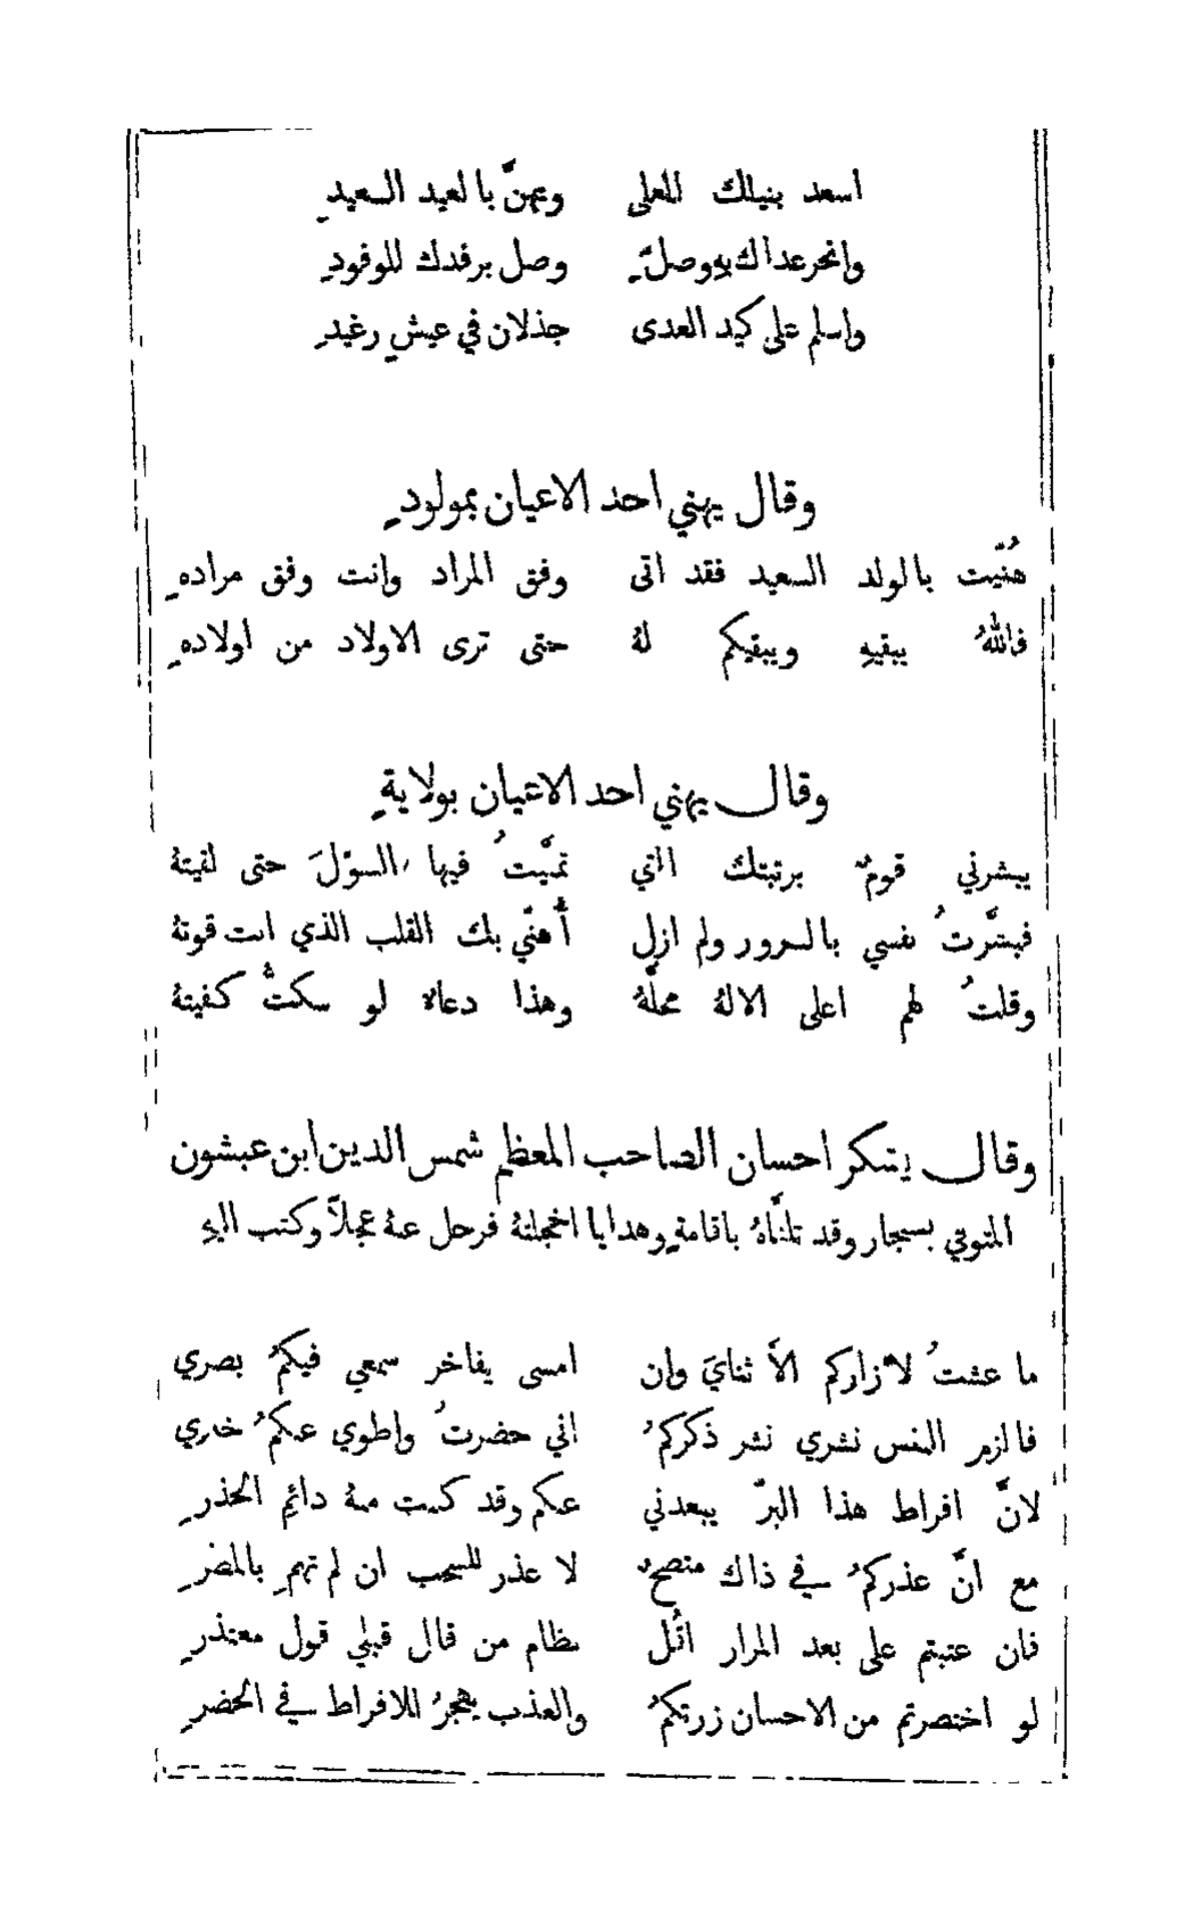 اسعد بنيلك للعلى وتهنَّ بالعيد السعيدِ
وانحر عداك بهِ وصلِّ وصل برفدك للوفودِ
واسلم على كيد العدى جذلان في عيشٍ رغيدِ
وقال يهني احد الاعيان بمولودٍ
هُنّيت بالولد السعيد فقد اتى وفق المراد وانت وفق مرادهِ
فاللهُ يبقيهِ ويبقيكم لهُ حتى ترى الاولاد من اولادهِ
وقال يهني احد الاعيان بولايةٍ
يبشرني قومٌ برتبتك التي تمنَّيتُ فيها السوّلَ حتى لقيتهُ
فبشَّرتُ نفسي بالسرور ولم ازل أُهنّي بك القلب الذي انت قوتهُ
وقلتُ لهم اعلى الالهُ محلّهُ وهذا دعاءٌ لو سكتُّ كفيتهُ
وقال يشكر احسان الصاحب المعظم شمس الدين ابن عبشون
المتوفي بسنجار وقد تلقّاهُ باقامةٍ وهدايا اخجلتهُ فرحل عنهُ عجلاً وكتب اليهِ
ما عشتُ لا زاركم الاَّ ثنايَ وان امسى يفاخر سمعي فيكمُ بصري
فالزم النفس نشري نشر ذكركمُ اني حضرتُ واطوي عنكمُ خبري
لانَّ افراط هذا البرّ يبعدني عنكم وقد كنت منهُ دائمِ الحذرِ
مع انَّ عذركمُ في ذاك متضحٌ لا عذر للسحب ان لم تهمِ بالمطرِ
فان عتبتم على بعد المزار اقُل نظام من قال قبلي قول معتذرِ
لو اختصرتم من الاحسان زرتكمُ والعذب يهجرُ للافراط في الخصرِ